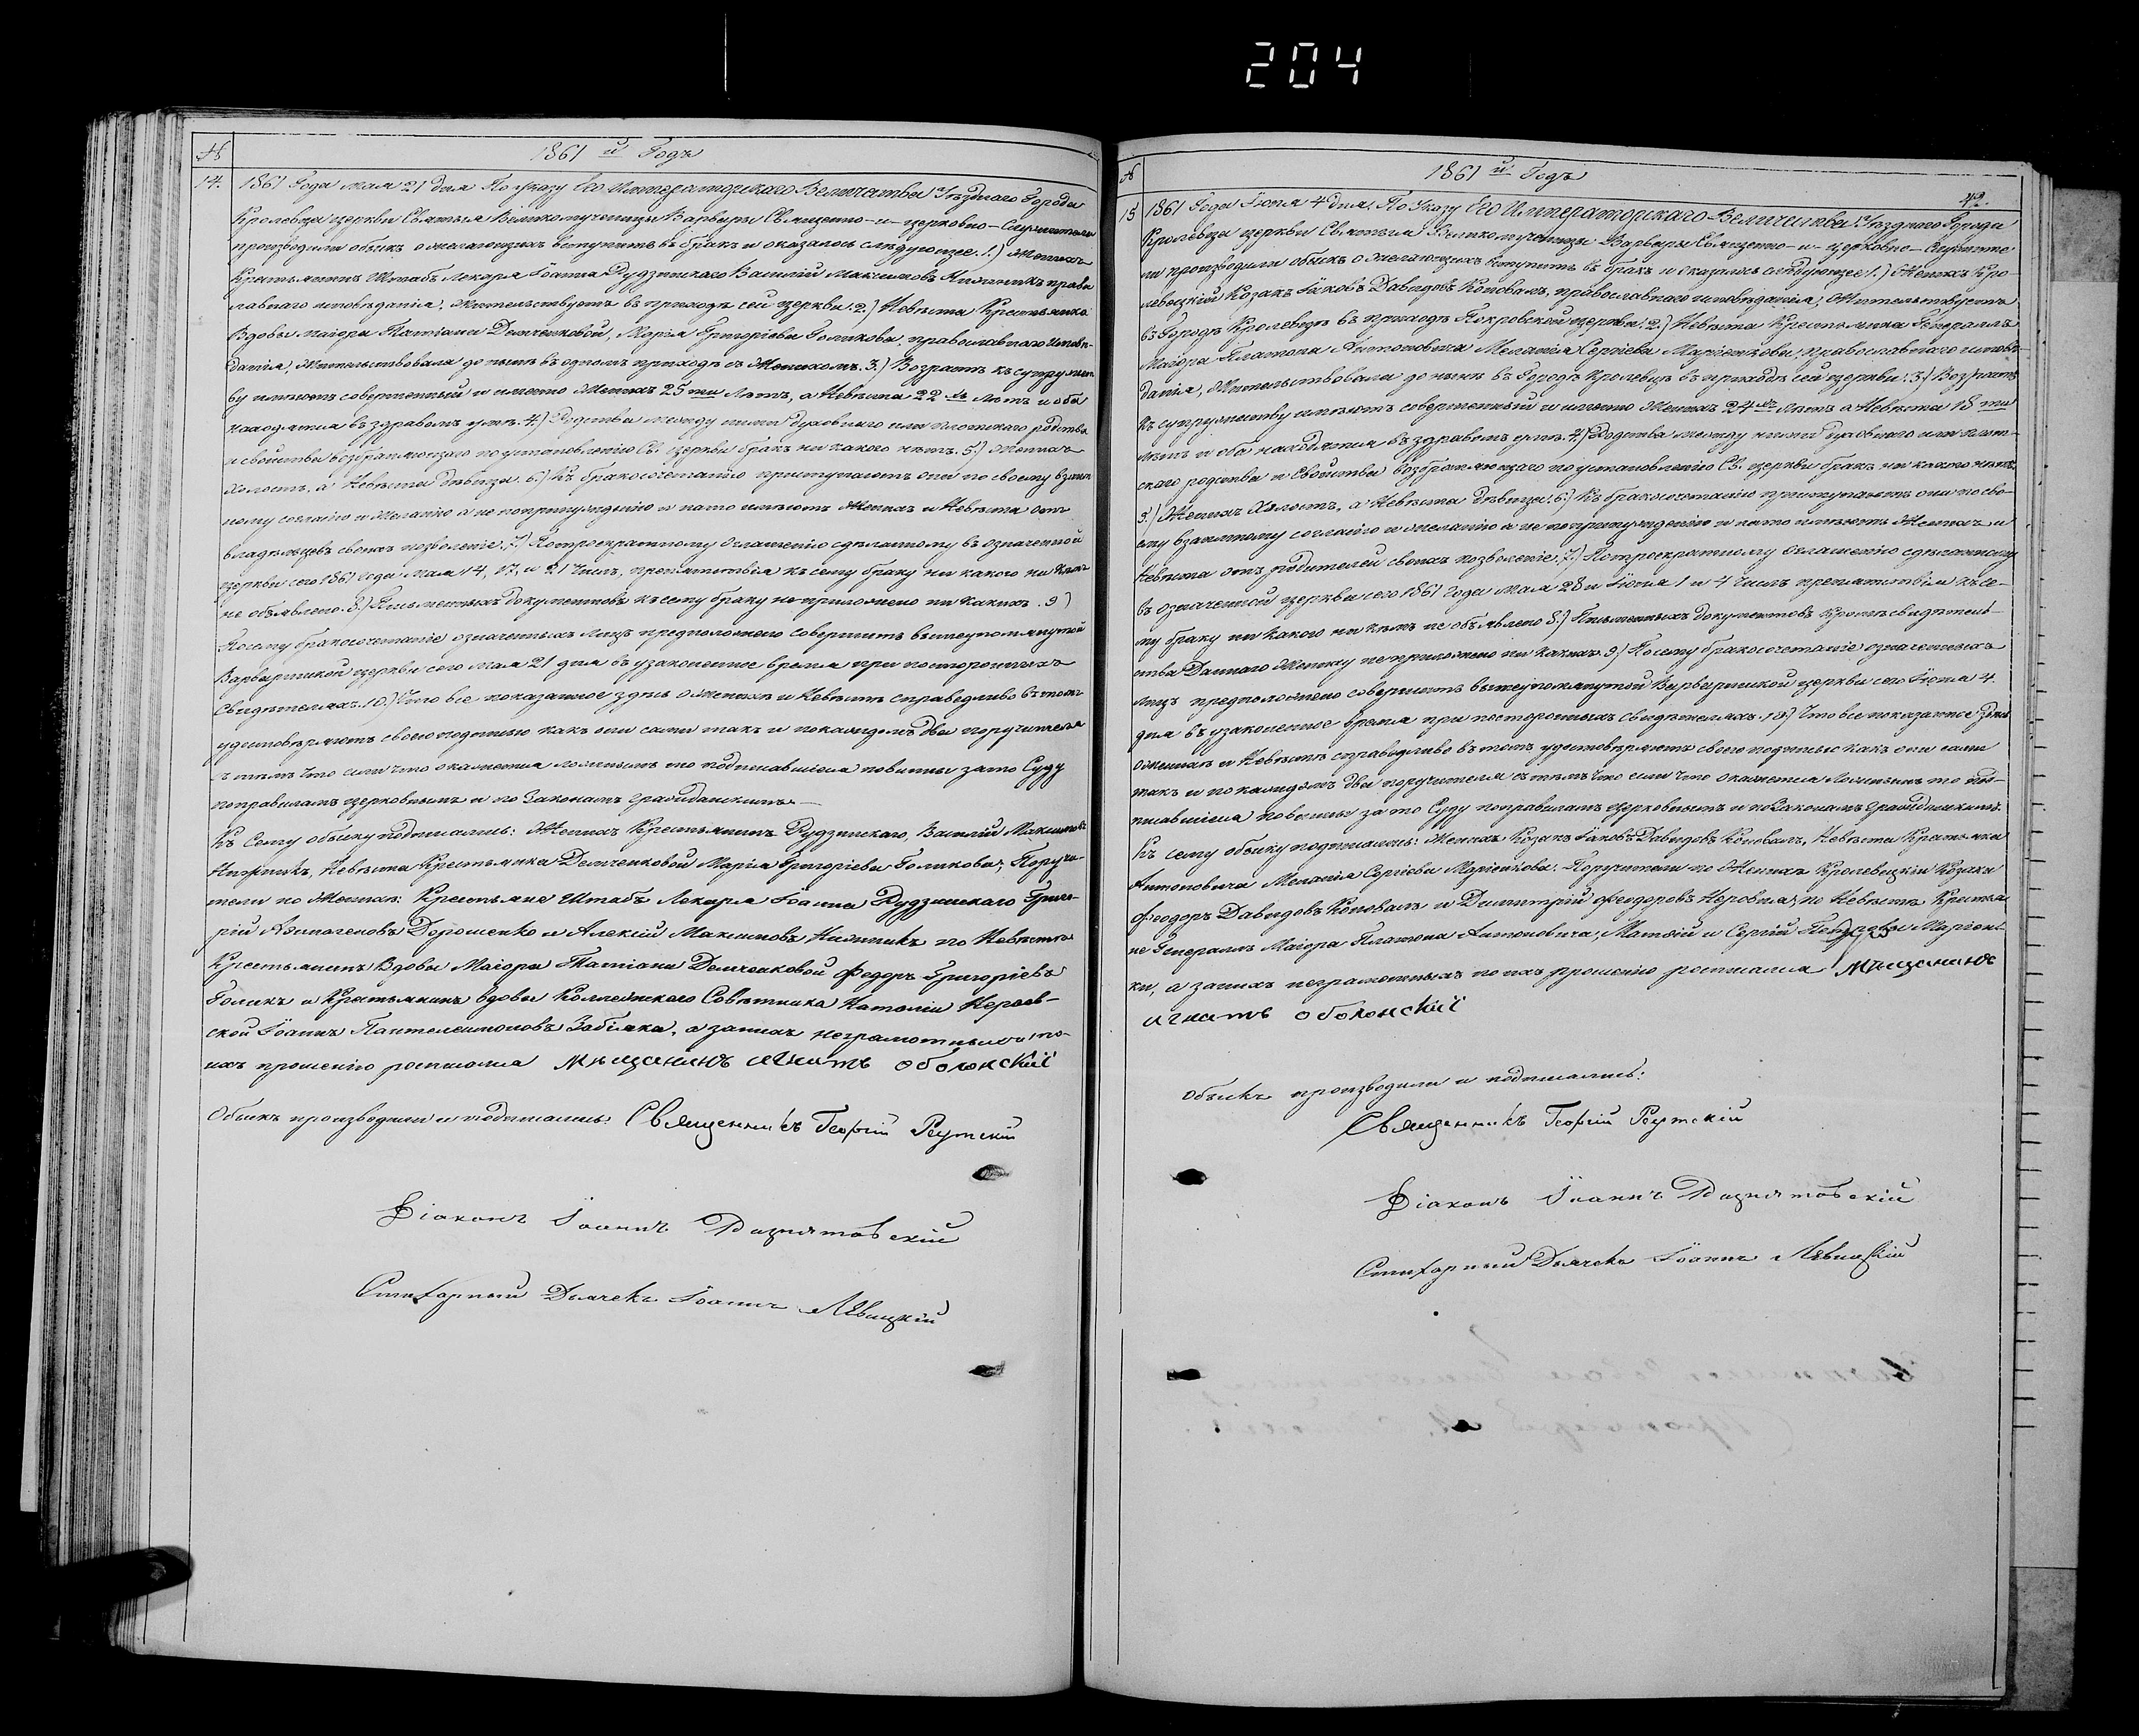 204
№ 1861й Годъ
14. 1861 Года мая 21 дня По Указу Его Императорскаго Величества Уѣзднаго Города
Кролевца церкви Святыя Великомученицы Варвары Священно-и-церковно-Служители
производили обыскъ о желающихъ вступить въ бракъ и оказалось слѣдующее. 1.) Женихъ
Крестьянинъ Штабъ Лекаря Іоанна Рудзинскаго Василій Максимовъ Нижникъ право
славнаго исповѣданія, Жительствуетъ въ приходѣ сей церкви. 2.) Невѣста Крестьянка
Вдовы маіора Татіаны Демченковой, Марія Григоріева Голикова, православнаго исповѣ-
данія, Жительствовала до нынѣ въ одномъ приходѣ съ Женихомъ. 3.) Возрастъ къ супружест
ву имѣютъ совершенный и именно Женихъ 25ти Лѣтъ, а Невѣста 22хъ Лѣтъ и оба
находятся въ здравомъ умѣ. 4.) Родства между ними Духовнаго или плотскаго родства
и свойства возбраняющаго по установленію Св. церкви бракъ ни какого нѣтъ. 5.) Женихъ
Холостъ, а Невѣста дѣвица. 6.) Къ бракосочетанію приступаютъ они по своему взаим
ному согласію и Желанію а не по принужденію и на то имѣютъ Женихъ и Невѣста отъ
владѣльцевъ своихъ позволеніе. 7.) По троекратному Оглашенію сдѣланному въ означенной
церкви сего 1861 Года Мая 14, 17, и 21 Числъ, препятствія къ сему браку ни какого ни кѣмъ
не объявлено. 8.) Письменныхъ документовъ къ сему браку не приложено ни какихъ. 9)
Посему бракосочетаніе означенныхъ Лицъ предположено совершить въ вышеупомянутой
Варваринской церкви сего Мая 21 дня въ узаконенное время при постороннихъ
Свидѣтеляхъ. 10.) Что все показанное здѣсь о Женихѣ и Невѣстѣ справедливо въ томъ
удостовѣряютъ своею подписью какъ они сами такъ и по каждомъ два поручителя
съ тѣмъ что если что окажется ложнымъ то подписавшіеся повинны за то Суду
по правиламъ церковнымъ и по Законамъ гражданскимъ.—
Къ Сему обыску подписались: Женихъ Крестьянинъ Рудзинскаго, Василій Максимовъ
Нижникъ, Невѣста Крестьянка Демченковой Марія Григоріева Голикова; Поручи-
тели по Женихѣ: Крестьяне Штабъ Лекаря Іоанна Рудзинскаго Григо-
рій Авиногеновъ Дорошенко и Алексій Максимовъ Нижникъ по Невѣстѣ
Крестьянинъ Вдовы Маіоры Татіаны Демченковой Федоръ Григоріевъ
Голикъ и Крестьянинъ вдовы Коллежскаго Совѣтника Наталіи Нераев-
ской Іоаннъ Пантелеимоновъ Забіяка, а за нихъ неграмотныхъ по
ихъ прошенію росписался мѣщанинъ игнатъ оболонскій
Обыскъ производили и подписались: Священникъ Георгій Реутскій
Діаконъ Іоаннъ Разнятовскій
Стихарный Дьячекъ Іоаннъ Лѣвицкій
№ 1861й Годъ
42.
15 1861 Года Іюня 4 дня. По Указу Его Императорскаго Величества Уѣзднаго Города
Кролевца церкви Святыя Великомученицы Варвары Священно-и-церковно-Служите
ли производили обыскъ о желающихъ вступить въ бракъ и оказалось слѣдующее 1.) Женихъ Кро-
левецкій Козакъ Іяковъ Давидовъ Коновалъ, православнаго исповѣданія, Жительствуетъ
въ Городѣ Кролевцѣ въ приходѣ Покровской церкви. 2.) Невѣста Крестьянка Генералъ
Маіора Платона Антоновича Меланія Сергіева Маріенкова, православнаго исповѣ-
данія, Жительствовала до нынѣ въ Городѣ Кролевцѣ въ приходѣ сей церкви. 3.) Возрастъ
къ супружеству имѣютъ совершенный и именно Женихъ 24хъ Лѣтъ а Невѣста 18ти
лѣтъ и оба находятся въ здравомъ умѣ. 4.) Родства между ними духовнаго или плот-
скаго родства и Свойства возбраняющаго по установленію Св. церкви бракъ ни какого нѣтъ
5.) Женихъ Холостъ, а Невѣста дѣвица. 6.) Къ бракосочетанію приступаютъ они по сво-
ему взаимному согласію и желанію а не по принужденію и на то имѣютъ Женихъ и
Невѣста отъ родителей своихъ позволеніе. 7.) По троекратному оглашенію сдѣланному
въ означенной церкви сего 1861 Года Мая 28 и Іюня 1 и 4 Числъ препятствія къ се-
му браку ни какого ни кѣмъ не объявлено 8.) Письменныхъ документовъ кромѣ свидѣтель-
ства Даннаго Жениху не приложено ни какихъ. 9.) Посему бракосочетаніе означенныхъ
Лицъ предположено совершить въ вышеупомянутой Варваринской церкви сего Іюня 4.
дня въ узаконенное время при постороннихъ свидѣтеляхъ. 10) Что все показанное здѣсь
о Женихѣ и Невѣстѣ справедливо въ томъ удостовѣряютъ своею подписью какъ они сами
такъ и по каждомъ два поручителя съ тѣмъ что если что окажется Ложнымъ то под-
писавшіеся повинны за то Суду по правиламъ церковнымъ и по Законамъ гражданскимъ.
Къ сему обыску подписались: Женихъ Козакъ Іяковъ Давидовъ Коновалъ, Невѣста Крестьянка
Антоновича Меланія Сергіева Маріенкова: Поручители по Женихѣ Кролевецкіи Козаки
Феодоръ Давидовъ Коновалъ и Димитрій Феодоровъ Неровня; по Невѣстѣ Крестья
не Генералъ Маіора Платона Антоновича, Матѳій и Сергій Петровы Маріен-
ки, а за нихъ неграмотныхъ по ихъ прошенію росписался мѣщанинъ
игнатъ оболонскій
Обыскъ производили и подписались:
Священникъ Георгій Реутскій
Діаконъ Іоаннъ Разнятовскій
Стихарный Дьячекъ Іоаннъ Лѣвицкій